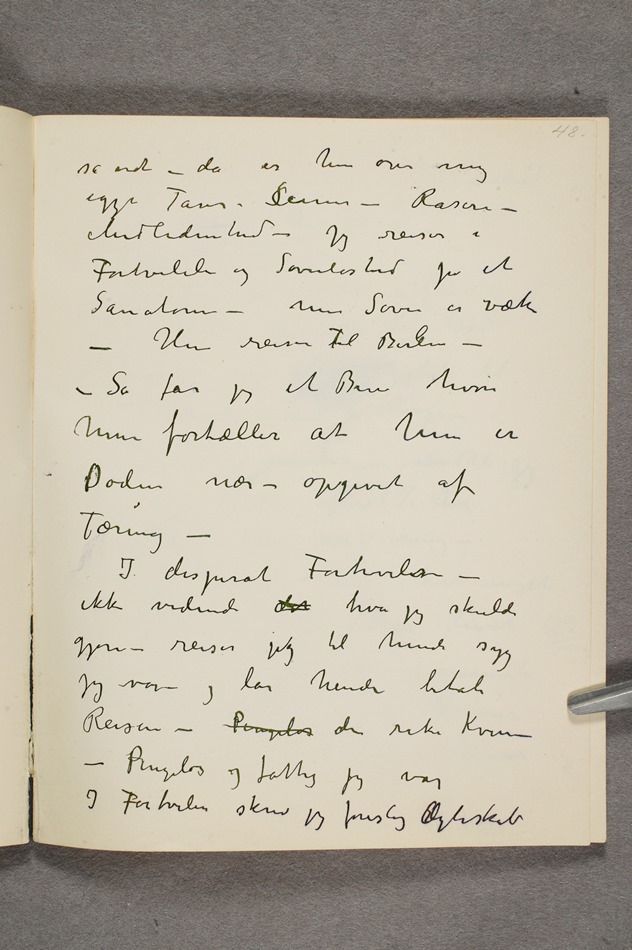 48.
så ondt – da er hun over mig
igjen Tårer – Scener – Raseri –
Medlidenhed – Jeg reiser i
Fortvilelse og Søvnløshed på et
Sanatorium – min Søvn er væk
– Hun reiser til Berlin –
– Så får jeg et Brev hvori
hun fortæller at hun er
Døden nær – opgivet af
Tæring –
I desperat Fortvilelse –
ikke vidende det hva jeg skulde
gjøre – reiser jeg til hende syg
jeg var og lar hende betale
Reisen – Pengeløs den rike Kvinne
– Pengeløs og fattig jeg var
I Fortvilelse skrev jeg foreslog Ægteskab